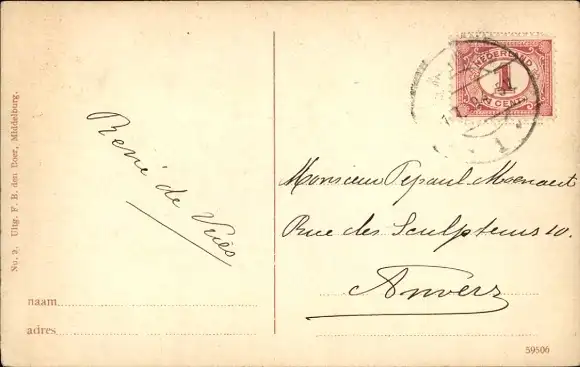 No. 2. Uitg. F. B. den Boer, Middelburg.
René de Vries
naam
adres
NEDERLAND
1
CENT
Monsieur Depaul-Moenaert
Rue des Sculpteurs 10.
Anvers
59506